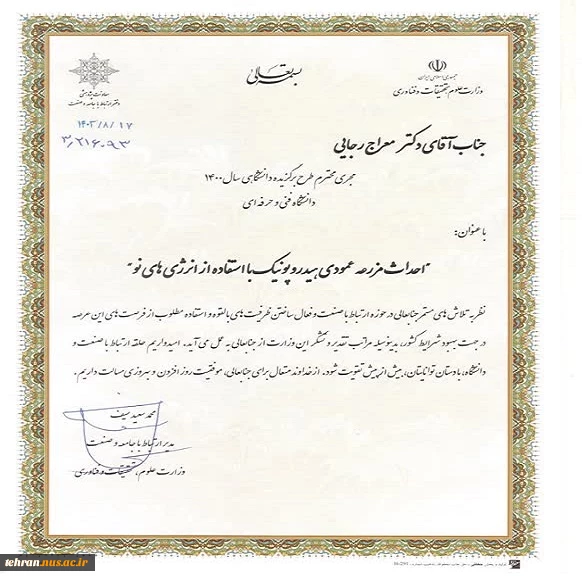 بسمه تعالی
جمهوری اسلامی ایران
وزارت علوم، تحقیقات و فناوری
معاونت پژوهشی
دفتر ارتباط با جامعه و صنعت
۱۴۰۲/۸/۱۷
۳/۲۱۶۰۹۳
جناب آقای دکتر معراج رجایی
مجری محترم طرح برگزیده دانشگاهی سال ۱۴۰۰
دانشگاه فنی و حرفه ای
با عنوان:
"احداث مزرعه عمودی هیدروپونیک با استفاده از انرژی های نو"
نظر به تلاش های مستمر جنابعالی در حوزه ارتباط با صنعت و فعال ساختن ظرفیت های بالقوه و استفاده مطلوب از فرصت های این عرصه
در جهت بهبود شرایط کشور، بدینوسیله مراتب تقدیر و تشکر این وزارت از جنابعالی به عمل می آید. امیدواریم حلقه ارتباط با صنعت و
دانشگاه، با دستان توانایتان، بیش از پیش تقویت شود. از خداوند متعال برای جنابعالی، موفقیت روزافزون و پیروزی مسالت داریم.
محمد سعید سیف
مدیر ارتباط با جامعه و صنعت
وزارت علوم، تحقیقات و فناوری
tehran.nus.ac.ir